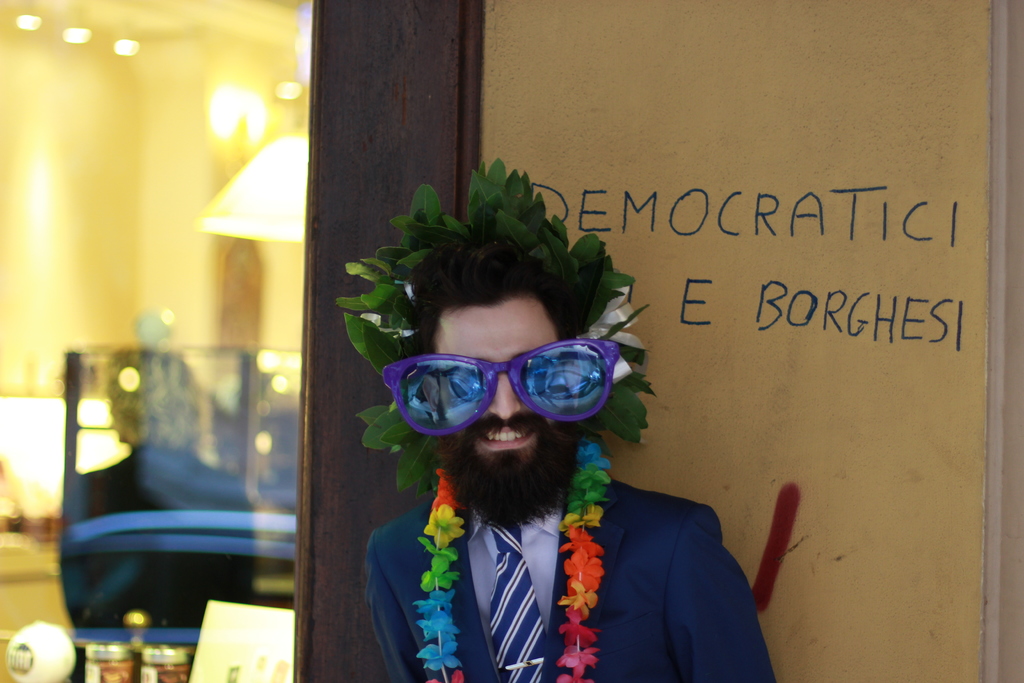 DEMOCRATICI
E BORGHESI